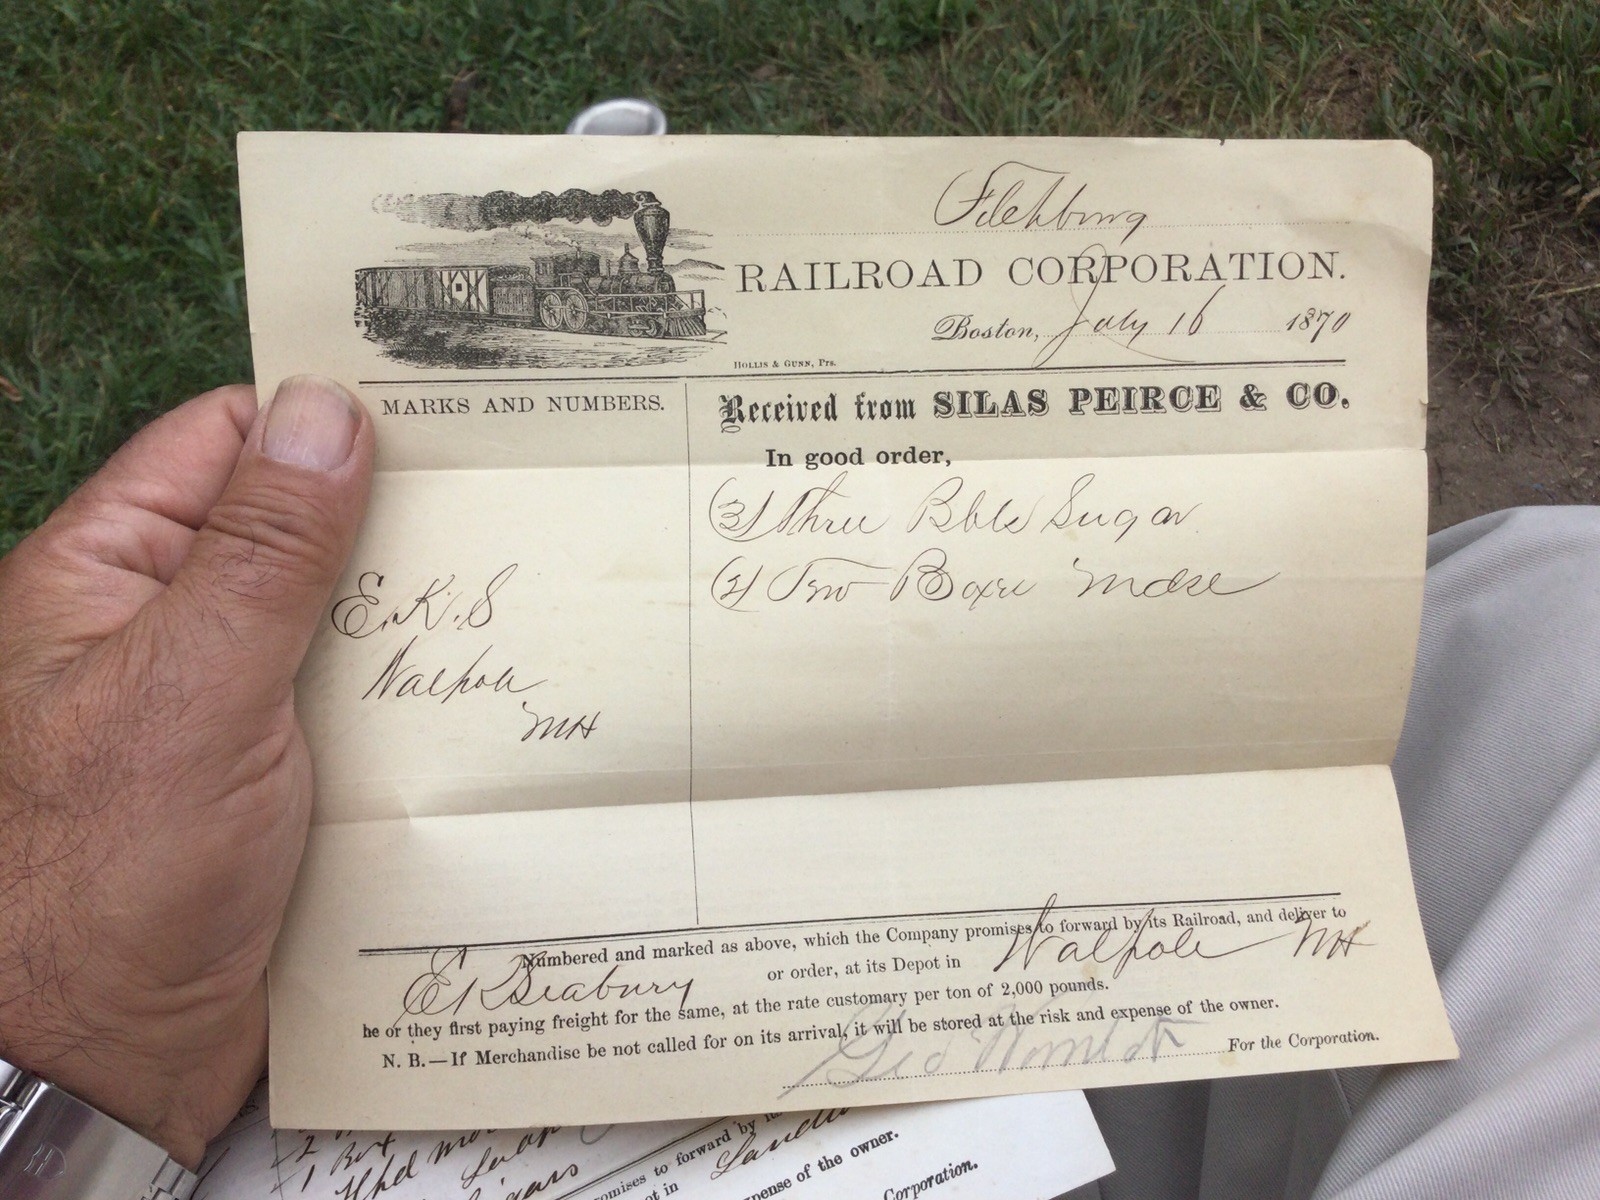 Fitchburg
RAILROAD CORPORATION.
Boston, July 16 1870
HOLLIS & GUNN, Prs.
MARKS AND NUMBERS.
Received from SILAS PEIRCE & CO.
In good order,
(3) Three Bbls Sugar
(2) Two Boxes Mdse
E.K.S
Walpole
NH
Numbered and marked as above, which the Company promises to forward by its Railroad, and deliver to
E K Seabury or order, at its Depot in Walpole NH
he or they first paying freight for the same, at the rate customary per ton of 2,000 pounds.
N. B.—If Merchandise be not called for on its arrival, it will be stored at the risk and expense of the owner.
Geo For the Corporation.
2
1 Box
romises to forward by
ot in
pense of the owner.
Corporation.